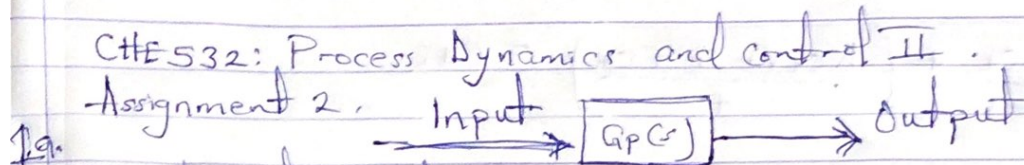 CHE532: Process Dynamics and control II.
Assignment 2.
1a. Input Gp(s) Output